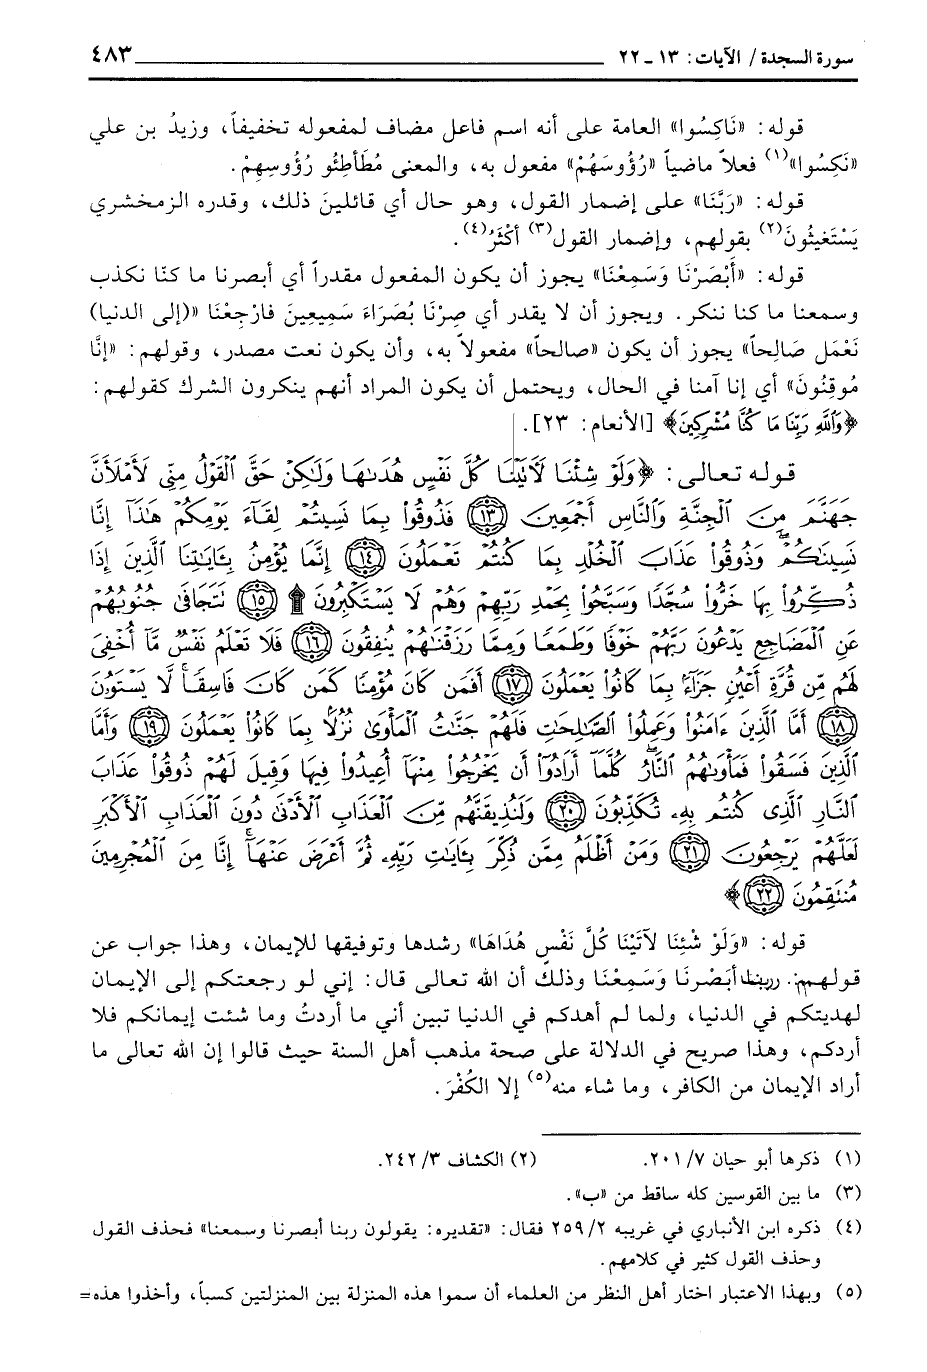 سورة السجدة / الآيات: ١٣ ـ ٢٢ ٤٨٣
قوله: «نَاكِسُوا» العامة على أنه اسم فاعل مضاف لمفعوله تخفيفاً، وزيدُ بن علي
«نَكِسُوا»(١) فعلاً ماضياً «رُؤُوسَهُمْ» مفعول به، والمعنى مُطَأطِئُو رُؤُوسِهِمْ.
قوله: «رَبَّنَا» على إضمار القول، وهو حال أي قائلينَ ذلك، وقدره الزمخشري
يَسْتَغيثُونَ(٢) بقولهم، وإضمار القول(٣) أكْثَرُ(٤).
قوله: «أَبْصَرْنَا وَسَمِعْنَا» يجوز أن يكون المفعول مقدراً أي أبصرنا ما كنّا نكذب
وسمعنا ما كنا ننكر. ويجوز أن لا يقدر أي صِرْنَا بُصَرَاءَ سَمِيعِينَ فارْجِعْنَا «(إلى الدنيا)
نَعْمَل صَالِحاً» يجوز أن يكون «صالحاً» مفعولاً به، وأن يكون نعت مصدر، وقولهم: «إنَّا
مُوقِنُونَ» أي إنا آمنا في الحال، ويحتمل أن يكون المراد أنهم ينكرون الشرك كقولهم:
﴿وَٱللَّهِ رَبِّنَا مَا كُنَّا مُشْرِكِينَ﴾ [الأنعام: ٢٣].
قوله تعالى: ﴿وَلَوْ شِئْنَا لَأَتَيْنَا كُلَّ نَفْسٍ هُدَىٰهَا وَلَٰكِنْ حَقَّ ٱلْقَوْلُ مِنِّي لَأَمْلَأَنَّ
جَهَنَّمَ مِنَ ٱلْجِنَّةِ وَٱلنَّاسِ أَجْمَعِينَ ١٣ فَذُوقُواْ بِمَا نَسِيتُمْ لِقَآءَ يَوْمِكُمْ هَٰذَآ إِنَّا
نَسِينَٰكُمْۖ وَذُوقُواْ عَذَابَ ٱلْخُلْدِ بِمَا كُنتُمْ تَعْمَلُونَ ١٤ إِنَّمَا يُؤْمِنُ بِـَٔايَٰتِنَا ٱلَّذِينَ إِذَا
ذُكِّرُواْ بِهَا خَرُّواْ سُجَّدًا وَسَبَّحُواْ بِحَمْدِ رَبِّهِمْ وَهُمْ لَا يَسْتَكْبِرُونَ ۩ ١٥ تَتَجَافَىٰ جُنُوبُهُمْ
عَنِ ٱلْمَضَاجِعِ يَدْعُونَ رَبَّهُمْ خَوْفًا وَطَمَعًا وَمِمَّا رَزَقْنَٰهُمْ يُنفِقُونَ ١٦ فَلَا تَعْلَمُ نَفْسٌ مَّآ أُخْفِيَ
لَهُم مِّن قُرَّةِ أَعْيُنٍ جَزَآءًۢ بِمَا كَانُواْ يَعْمَلُونَ ١٧ أَفَمَن كَانَ مُؤْمِنًا كَمَن كَانَ فَاسِقًاۚ لَّا يَسْتَوُۥنَ
١٨ أَمَّا ٱلَّذِينَ ءَامَنُواْ وَعَمِلُواْ ٱلصَّٰلِحَٰتِ فَلَهُمْ جَنَّٰتُ ٱلْمَأْوَىٰ نُزُلًۢا بِمَا كَانُواْ يَعْمَلُونَ ١٩ وَأَمَّا
ٱلَّذِينَ فَسَقُواْ فَمَأْوَىٰهُمُ ٱلنَّارُۖ كُلَّمَآ أَرَادُوٓاْ أَن يَخْرُجُواْ مِنْهَآ أُعِيدُواْ فِيهَا وَقِيلَ لَهُمْ ذُوقُواْ عَذَابَ
ٱلنَّارِ ٱلَّذِى كُنتُم بِهِۦ تُكَذِّبُونَ ٢٠ وَلَنُذِيقَنَّهُم مِّنَ ٱلْعَذَابِ ٱلْأَدْنَىٰ دُونَ ٱلْعَذَابِ ٱلْأَكْبَرِ
لَعَلَّهُمْ يَرْجِعُونَ ٢١ وَمَنْ أَظْلَمُ مِمَّن ذُكِّرَ بِـَٔايَٰتِ رَبِّهِۦ ثُمَّ أَعْرَضَ عَنْهَآۚ إِنَّا مِنَ ٱلْمُجْرِمِينَ
مُنتَقِمُونَ ٢٢﴾
قوله: «وَلَوْ شْئِنَا لآتَيْنَا كُلَّ نَفْسٍ هُدَاهَا» رشدها وتوفيقها للإيمان، وهذا جواب عن
قولهم: ربنا أبَصْرنَا وَسَمِعْنَا وذلك أن الله تعالى قال: إني لو رجعتكم إلى الإيمان
لهديتكم في الدنيا، ولما لم أهدكم في الدنيا تبين أني ما أردتُ وما شئت إيمانكم فلا
أردكم، وهذا صريح في الدلالة على صحة مذهب أهل السنة حيث قالوا إن الله تعالى ما
أراد الإيمان من الكافر، وما شاء منه(٥) إلا الكُفْرَ.
(١) ذكرها أبو حيان ٧/ ٢٠١. (٢) الكشاف ٣/ ٢٤٢.
(٣) ما بين القوسين كله ساقط من «ب».
(٤) ذكره ابن الأنباري في غريبه ٢/ ٢٥٩ فقال: «تقديره: يقولون ربنا أبصرنا وسمعنا» فحذف القول
وحذف القول كثير في كلامهم.
(٥) وبهذا الاعتبار اختار أهل النظر من العلماء أن سموا هذه المنزلة بين المنزلتين كسباً، وأخذوا هذه=